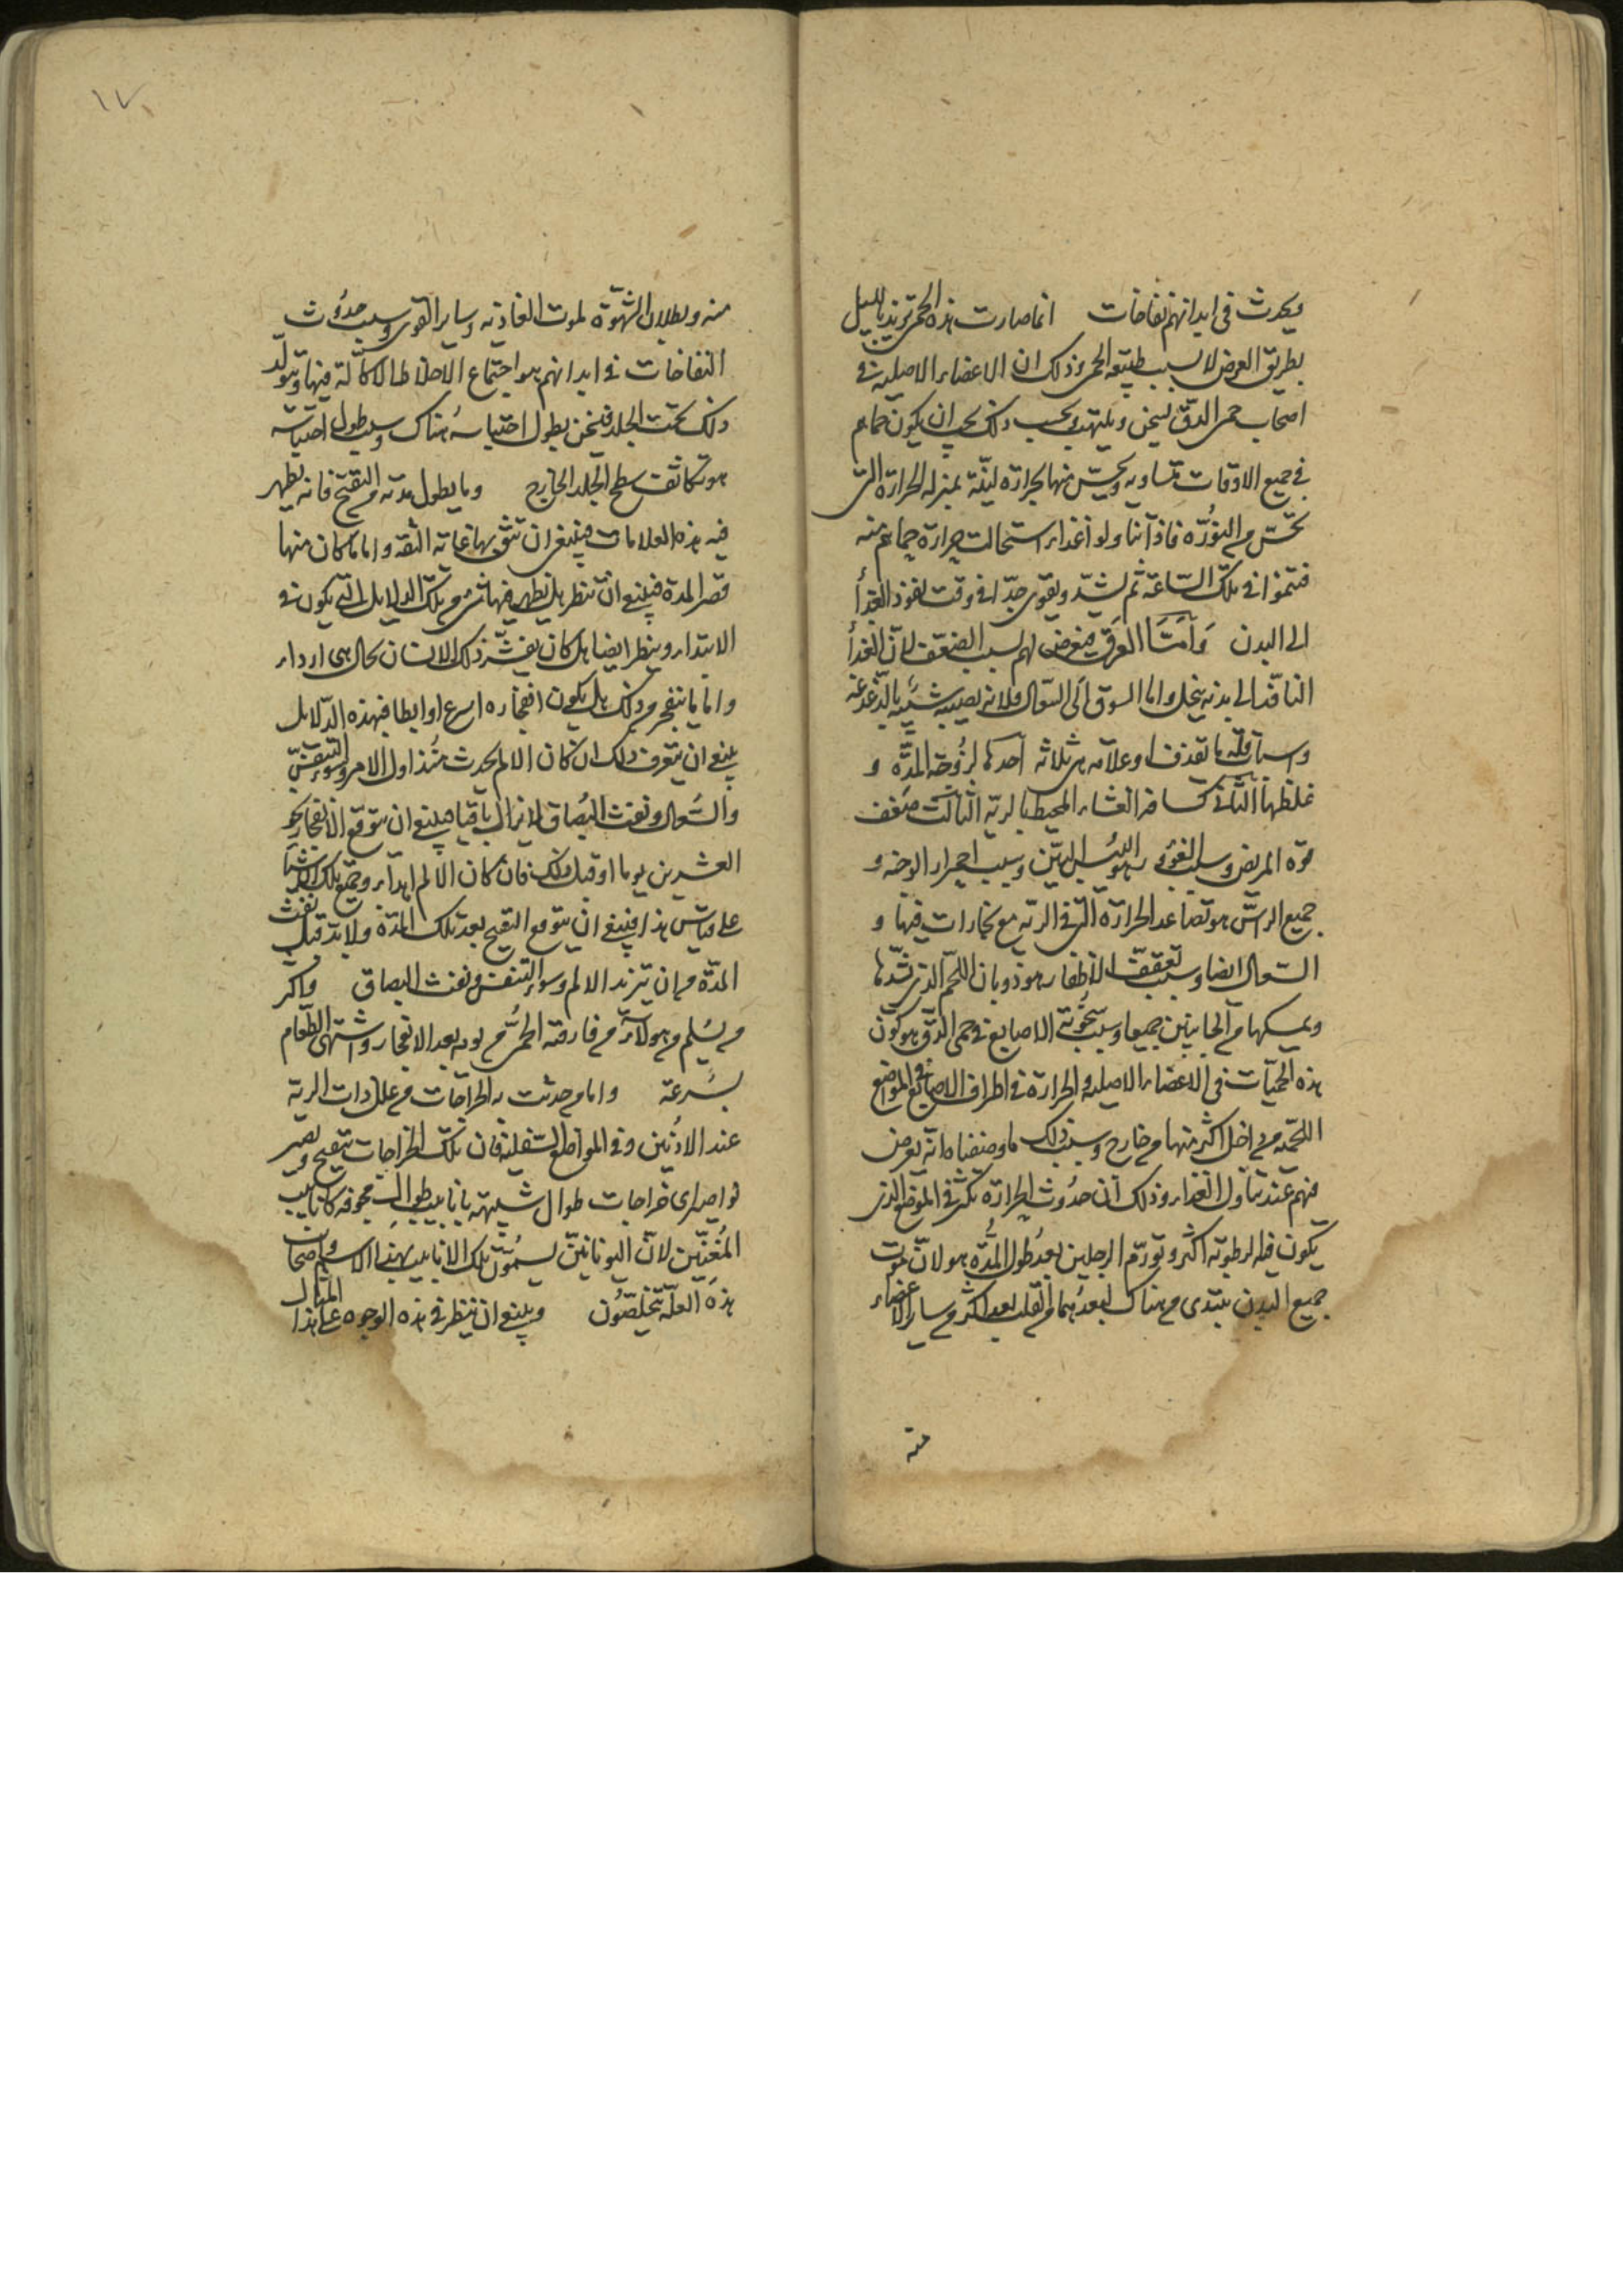 ويحدث في ابدانهم نفاخات انما صارت هذه الحمى تزيد بالليل
بطريق العرض لا بسبب طبيعة الحمى وذلك ان الاعضاء الاصلية في
اصحاب حمى الدق تسخن ويلتهب وبحسب ذلك يجب ان يكون حماهم
في جميع الاوقات متساويه ويحس منها بحرارة لينة بمنزله الحرارة التي
تحس من النورة فاذا تناولوا غذاء استحالت حرارة حماهم منه
فتنموا في تلك الساعة ثم تشتد ويقوى جدا في وقت نفوذ الغذأ
الى البدن وأمّا العرق فيعرض لهم بسبب الضعف لان الغذأ
النافذ الى بدنه ينحل واما السوق الى السعال فلانه يصيبه شبيه بالدغدغة
واسباب قلة ما تقذف وعلامه هي ثلاثه احدها لزوجة المدّة و
غلظها الثاني كسافر الغشاء المحيط بالرية الثالث ضعف
قوة المريض وسبب الغؤر هو اليُبس البيّن وسبب احمرار الوجنه و
جميع الراس هو تصاعد الحرارة التي في الرية مع بخارات فيها و
السعال ايضا وسبب تعقف الاظفار هو ذوبان اللحم الذي يشدها
ويمسكها من الجانبين جميعا وسبب سخونة الاصابع في حمى الدق هو كون
هذه الحميات في الاعضاء الاصلية والحرارة في اطراف الاصابع في المواضع
اللحمية من داخل اكثر منها من خارج وسبب ذلك ما وصفناه انه يعرض
فيهم عند تناول الغذاء وذلك ان حدوث الحرارة يكثر في الموضع الذي
يكون فيه الرطوبة اكثر وتورّم الرجلين بعد طول المُدّة هو لانّ موت
جميع البدن يبتدى من هناك لبعدهما من القلب بعد اكثر من ساير الاعضاء
منه
١٧
منه وبطلان الشهوة لموت الغاذية وساير القوى وسبب حدوث
النفاخات في ابدانهم هو اجتماع الاخلاط الاكّالة فيها وتتولّد
ذلك تحت الجلد فيسخن بطول احتباسه هناك وسبب طول احتباسه
هو تكاثف سطح الجلد الخارج وما يطول مدته من التقيح فانه يظهر
فيه هذه العلامات فينبغي ان تثق بها غاية الثقة واما ما كان منها
قصر المدة فينبغي ان تنظر هل يظهر فيها شئ من تلك الدلايل التي يكون في
الابتداء وينظر ايضا هل كان يفسّر ذلك الانسان بحال هي ارداء
واما ما ينفجر من ذلك هل يكون انفجاره اسرع او ابطا فبهذه الدّلايل
ينبغي ان يتعرف ذلك ان كان الالم يحدث مُنذ اول الامر وسوء التنفّس
والسُعال ونفث البُصاق لا يزال باقيا فينبغي ان يتوقع الانفجار نحو
العشرين يوما او قبل ذلك فان كان الالم اهدأ وجميع تلك الاشيأ
على قياس هذا فينبغي ان يتوقع التقيح بعد تلك المدّة ولا بد قبل نفث
المدّة من ان تتزيد الالم وسوء التنفس ونفث البصاق واكثر
من يسلم من هولاء من فارقته الحمّى من يومه بعد الانفجار واشتهى الطعام
بسُرعة واما من حدثت به الخراجات من علل ذات الرية
عند الاذنين وفي المواضع السفلية فان تلك الخراجات تتقيح ويصير
نواصير اى خراجات طوال شبيهة بانابيب طوال مجوفه كانابيب
المُغنّين لانّ اليونانيين يسمّون تلك الانابيب بهذا الاسم واصحاب
هذه العلّة يتخلصُون وينبغي ان تنظر في هذه الوجوه على هذا المثال